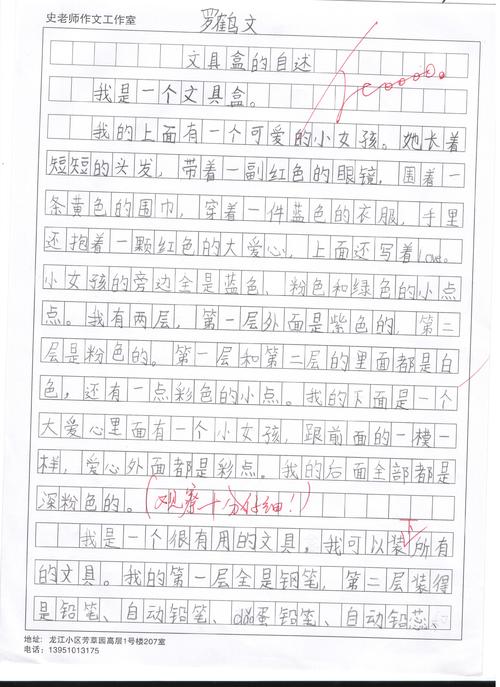 史老师作文工作室
罗鹤文
文具盒的自述
我是一个文具盒。
我的上面有一个可爱的小女孩。她长着
短短的头发，带着一副红色的眼镜，围着一
条黄色的围巾，穿着一件蓝色的衣服，手里
还抱着一颗红色的大爱心，上面还写着Love。
小女孩的旁边全是蓝色、粉色和绿色的小点
点。我有两层，第一层外面是紫色的，第二
层是粉色的。第一层和第二层的里面都是白
色，还有一点彩色的小点。我的下面是一个
大爱心里面有一个小女孩，跟前面的一模一
样，爱心外面都是彩点。我的后面全部都是
深粉色的。（观察十分仔细！）
下
我是一个很有用的文具。我可以装所有
的文具。我的第一层全是钢笔，第二层装得
是铅笔、自动铅笔、蛋铅笔、自动铅蕊、
地址：龙江小区芳草园高层1号楼207室
电话：13951013175